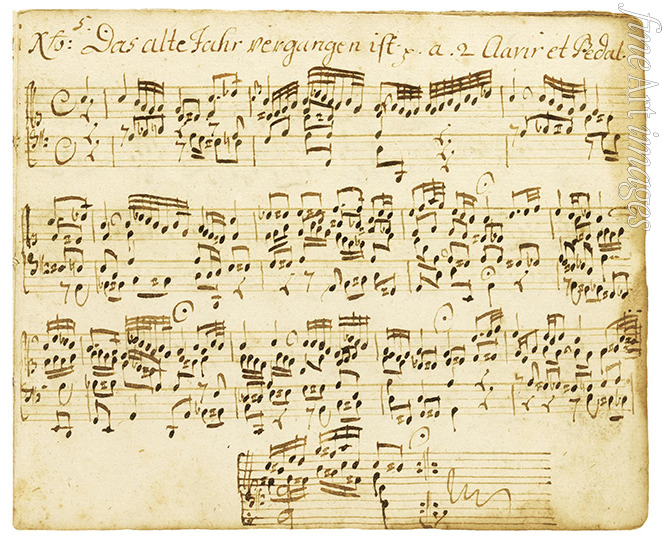 Xto: 5. Das alte Jahr vergangen ist. a. 2 Clavir et Pedal.
fineArtimages